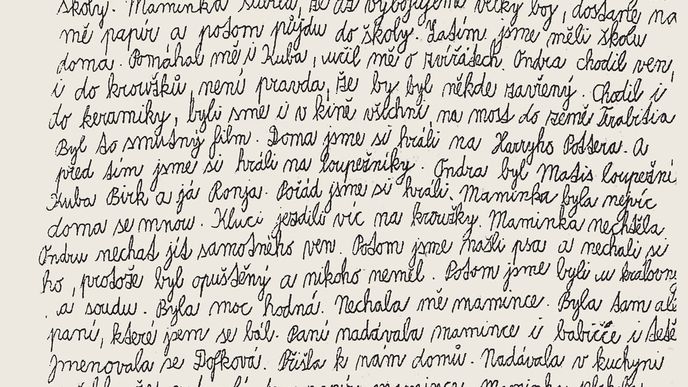 školy. Maminka slíbila, že až vybojujeme velký boj, dostane na
mě papír a potom půjdu do školy. Zatím jsme měli školu
doma. Pomáhal mě i Kuba, učil mě o zvířátech. Ondra chodil ven,
i do kroužků, není pravda, že by byl někde zavřený. Chodil i
do keramiky, byli sme i v kině všichni, na most do země Terabitia
Byl to smutný film. Doma jsme si hráli na Harryho Pottera. A
před tím jsme si hráli na loupežníky. Ondra byl Matis loupežní
Kuba Birk a já Ronja. Pořád jsme si hráli. Maminka byla nejvíc
doma se mnou. Kluci jezdili víc na kroužky. Maminka nechtěla
Ondru nechat jít samotného ven. Potom jsme našli psa a nechali si
ho, protože byl opuštěný a nikoho neměl. Potom jsme byli u královny
a soudu. Byla moc hodná. Nechala mě mamince. Byla tam ale
paní, které jsem se bál. Paní nadávala mamince i babičce i tetě
Jmenovala se Dofková. Přišla k nam domů. Nadávala v kuchyni